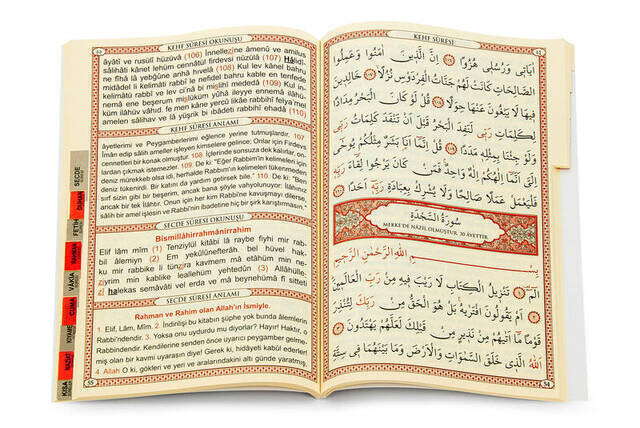 SECDE
DUHAN
FETİH
RAHMAN
VAKIA
CUMA
KIYAME
KISA
KEHF SÛRESİ OKUNUŞU
âyâtî ve rusülî hüzüvâ (106) İnnellezîne âmenû ve amilus
sâlihâti kânet lehüm cennâtül firdevsi nüzülâ (107) Hâlidî-
ne fîhâ lâ yebğûne anhâ hıvelâ (108) Kul lev kânel bahru
midâdel li kelimâti rabbî le nefidel bahru kable en tenfede
kelimâtü rabbî ve lev ci'nâ bi mislihî mededâ (109) Kul inne-
mâ ene beşerum mislüküm yûhâ ileyye ennemâ ilâhü-
küm ilâhüv vâhid. fe men kâne yercû likâe rabbihî felya'mel
amelen sâlihav ve lâ yüşrik bi ıbâdeti rabbihî ehadâ (110)
KEHF SÛRESİ ANLAMI
âyetlerimi ve Peygamberlerimi eğlence yerine tutmuşlardır. 107
İman edip sâlih ameller işleyen kimselere gelince; Onlar için Firdevs
cennetleri bir konak olmuştur. 108 İçlerinde sonsuza dek kalırlar, on-
lardan çıkmak istemezler. 109. De ki: "Eğer Rabbim'in kelimeleri için
deniz mürekkeb olsa idi, herhalde Rabbım'ın kelimeleri tükenmeden
deniz tükenirdi. Bir katını da yardım getirsek bile." 110. De ki: "Ben
sırf sizin gibi bir beşerim, ancak bana şöyle vahyolunuyor: İlâhınız
ancak bir tek İlâhtır. Onun için her kim Rabbi'ne kavuşmayı dilerse,
sâlih bir amel işlesin ve Rabbi'nin ibadetine hiç bir şirk karıştırmasın."
SECDE SÛRESİ OKUNUŞU
Bismillâhirrahmânirrahim
Elif lâm mîm (1) Tenzîlül kitâbi lâ raybe fîyhi mir rab-
bil âlemiyn (2) Em yekûlûnefterâh. bel hüvel hak-
ku mir rabbike li tünzira kavmem mâ etâhüm min ne-
ziyrim min kablike leallehüm yehtedûn (3) Allâhülle-
zî halekas semâvâti vel erda ve mâ beynehümâ fî sitteti
SECDE SÛRESİ ANLAMI
Rahman ve Rahim olan Allah'ın İsmiyle.
1. Elif, Lâm, Mîm. 2. İndirilişi bu kitabın şüphe yok bunda âlemlerin
Rabbi'ndendir. 3. Yoksa onu uydurdu mu diyorlar? Hayır! Haktır, o
Rabbindendir. Kendilerine senden önce uyarıcı peygamber gelme-
miş olan bir kavmi uyarasın diye! Gerek ki, hidâyeti kabûl ederler!
4. Allah O ki, gökleri ve yeri ve aralarındakini altı günde yaratmış,
55
KEHF SÛRESİ
اٰيَاتِي وَرُسُلِي هُزُوًا ﴿١٠٦﴾ اِنَّ الَّذِينَ اٰمَنُوا وَعَمِلُوا
الصَّالِحَاتِ كَانَتْ لَهُمْ جَنَّاتُ الْفِرْدَوْسِ نُزُلًا ﴿١٠٧﴾ خَالِدِينَ
فِيهَا لَا يَبْغُونَ عَنْهَا حِوَلًا ﴿١٠٨﴾ قُلْ لَوْ كَانَ الْبَحْرُ مِدَادًا
لِكَلِمَاتِ رَبِّي لَنَفِدَ الْبَحْرُ قَبْلَ اَنْ تَنْفَدَ كَلِمَاتُ رَبِّي
وَلَوْ جِئْنَا بِمِثْلِهِ مَدَدًا ﴿١٠٩﴾ قُلْ اِنَّمَا اَنَا بَشَرٌ مِثْلُكُمْ يُوحٰى
اِلَيَّ اَنَّمَا اِلٰهُكُمْ اِلٰهٌ وَاحِدٌ فَمَنْ كَانَ يَرْجُوا لِقَاءَ رَبِّهِ
فَلْيَعْمَلْ عَمَلًا صَالِحًا وَلَا يُشْرِكْ بِعِبَادَةِ رَبِّهِ اَحَدًا ﴿١١٠﴾
سُورَةُ السَّجْدَةِ
MEKKE'DE NÂZİL OLMUŞTUR. 30 ÂYETTİR.
بِسْمِ اللّٰهِ الرَّحْمٰنِ الرَّحِيمِ
الٓمٓ ﴿١﴾ تَنْزِيلُ الْكِتَابِ لَا رَيْبَ فِيهِ مِنْ رَبِّ الْعَالَمِينَ
﴿٢﴾ اَمْ يَقُولُونَ افْتَرٰيهُ بَلْ هُوَ الْحَقُّ مِنْ رَبِّكَ لِتُنْذِرَ
قَوْمًا مَا اَتٰيهُمْ مِنْ نَذِيرٍ مِنْ قَبْلِكَ لَعَلَّهُمْ يَهْتَدُونَ ﴿٣﴾
اَللّٰهُ الَّذِي خَلَقَ السَّمٰوَاتِ وَالْاَرْضَ وَمَا بَيْنَهُمَا فِي سِتَّةِ
54